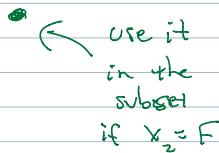 use it
in the
subset
if x₂ = F